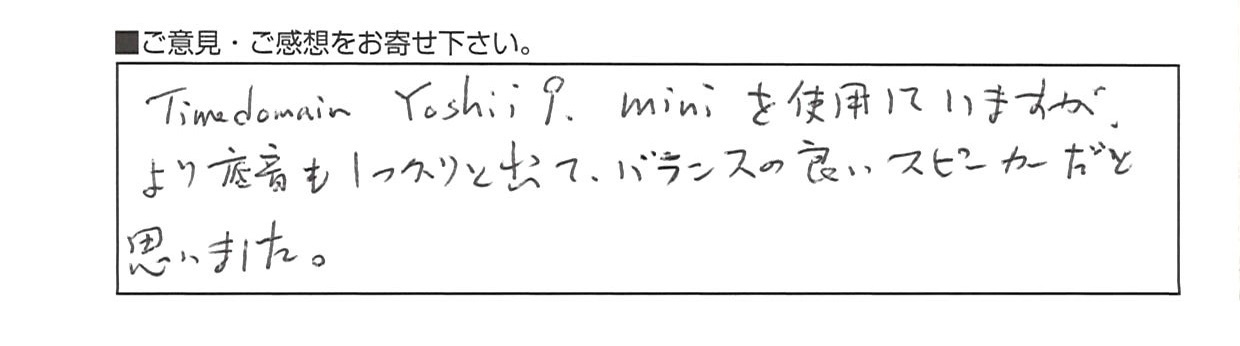 ■ご意見・ご感想をお寄せ下さい。
Timedomain Yoshii9、miniを使用していますが、
より底音もしっかりと出て、バランスの良いスピーカーだと
思いました。